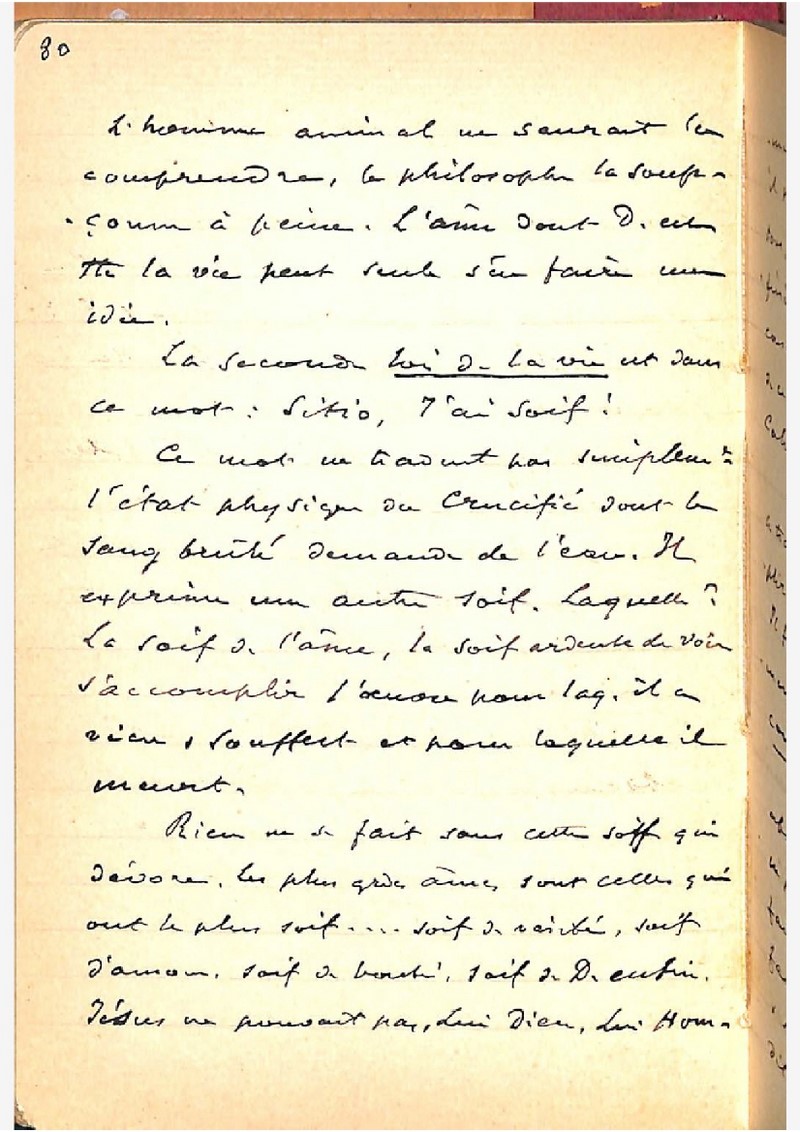 80
L'homme animal ne saurait la
comprendre, le philosophe la soup-
çonne à peine. L'âme dont D. est
la vie peut seule s'en faire une
idée.
La seconde loi de la vie est dans
ce mot : Sitio, J'ai soif !
Ce mot ne traduit pas simplemt
l'état physique du Crucifié dont le
sang brûlé demande de l'eau. Il
exprime une autre soif. Laquelle ?
La soif de l'âme, la soif ardente de voir
s'accomplir l'œuvre pour laq. il a
vécu, souffert et pour laquelle il
meurt.
Rien ne se fait sans cette soif qui
dévore. Les plus grdes âmes sont celles qui
ont le plus soif.... soif de vérité, soif
d'amour, soif de bonté, soif de D. enfin.
Jésus ne pouvait pas, Lui Dieu, Lui Hom-